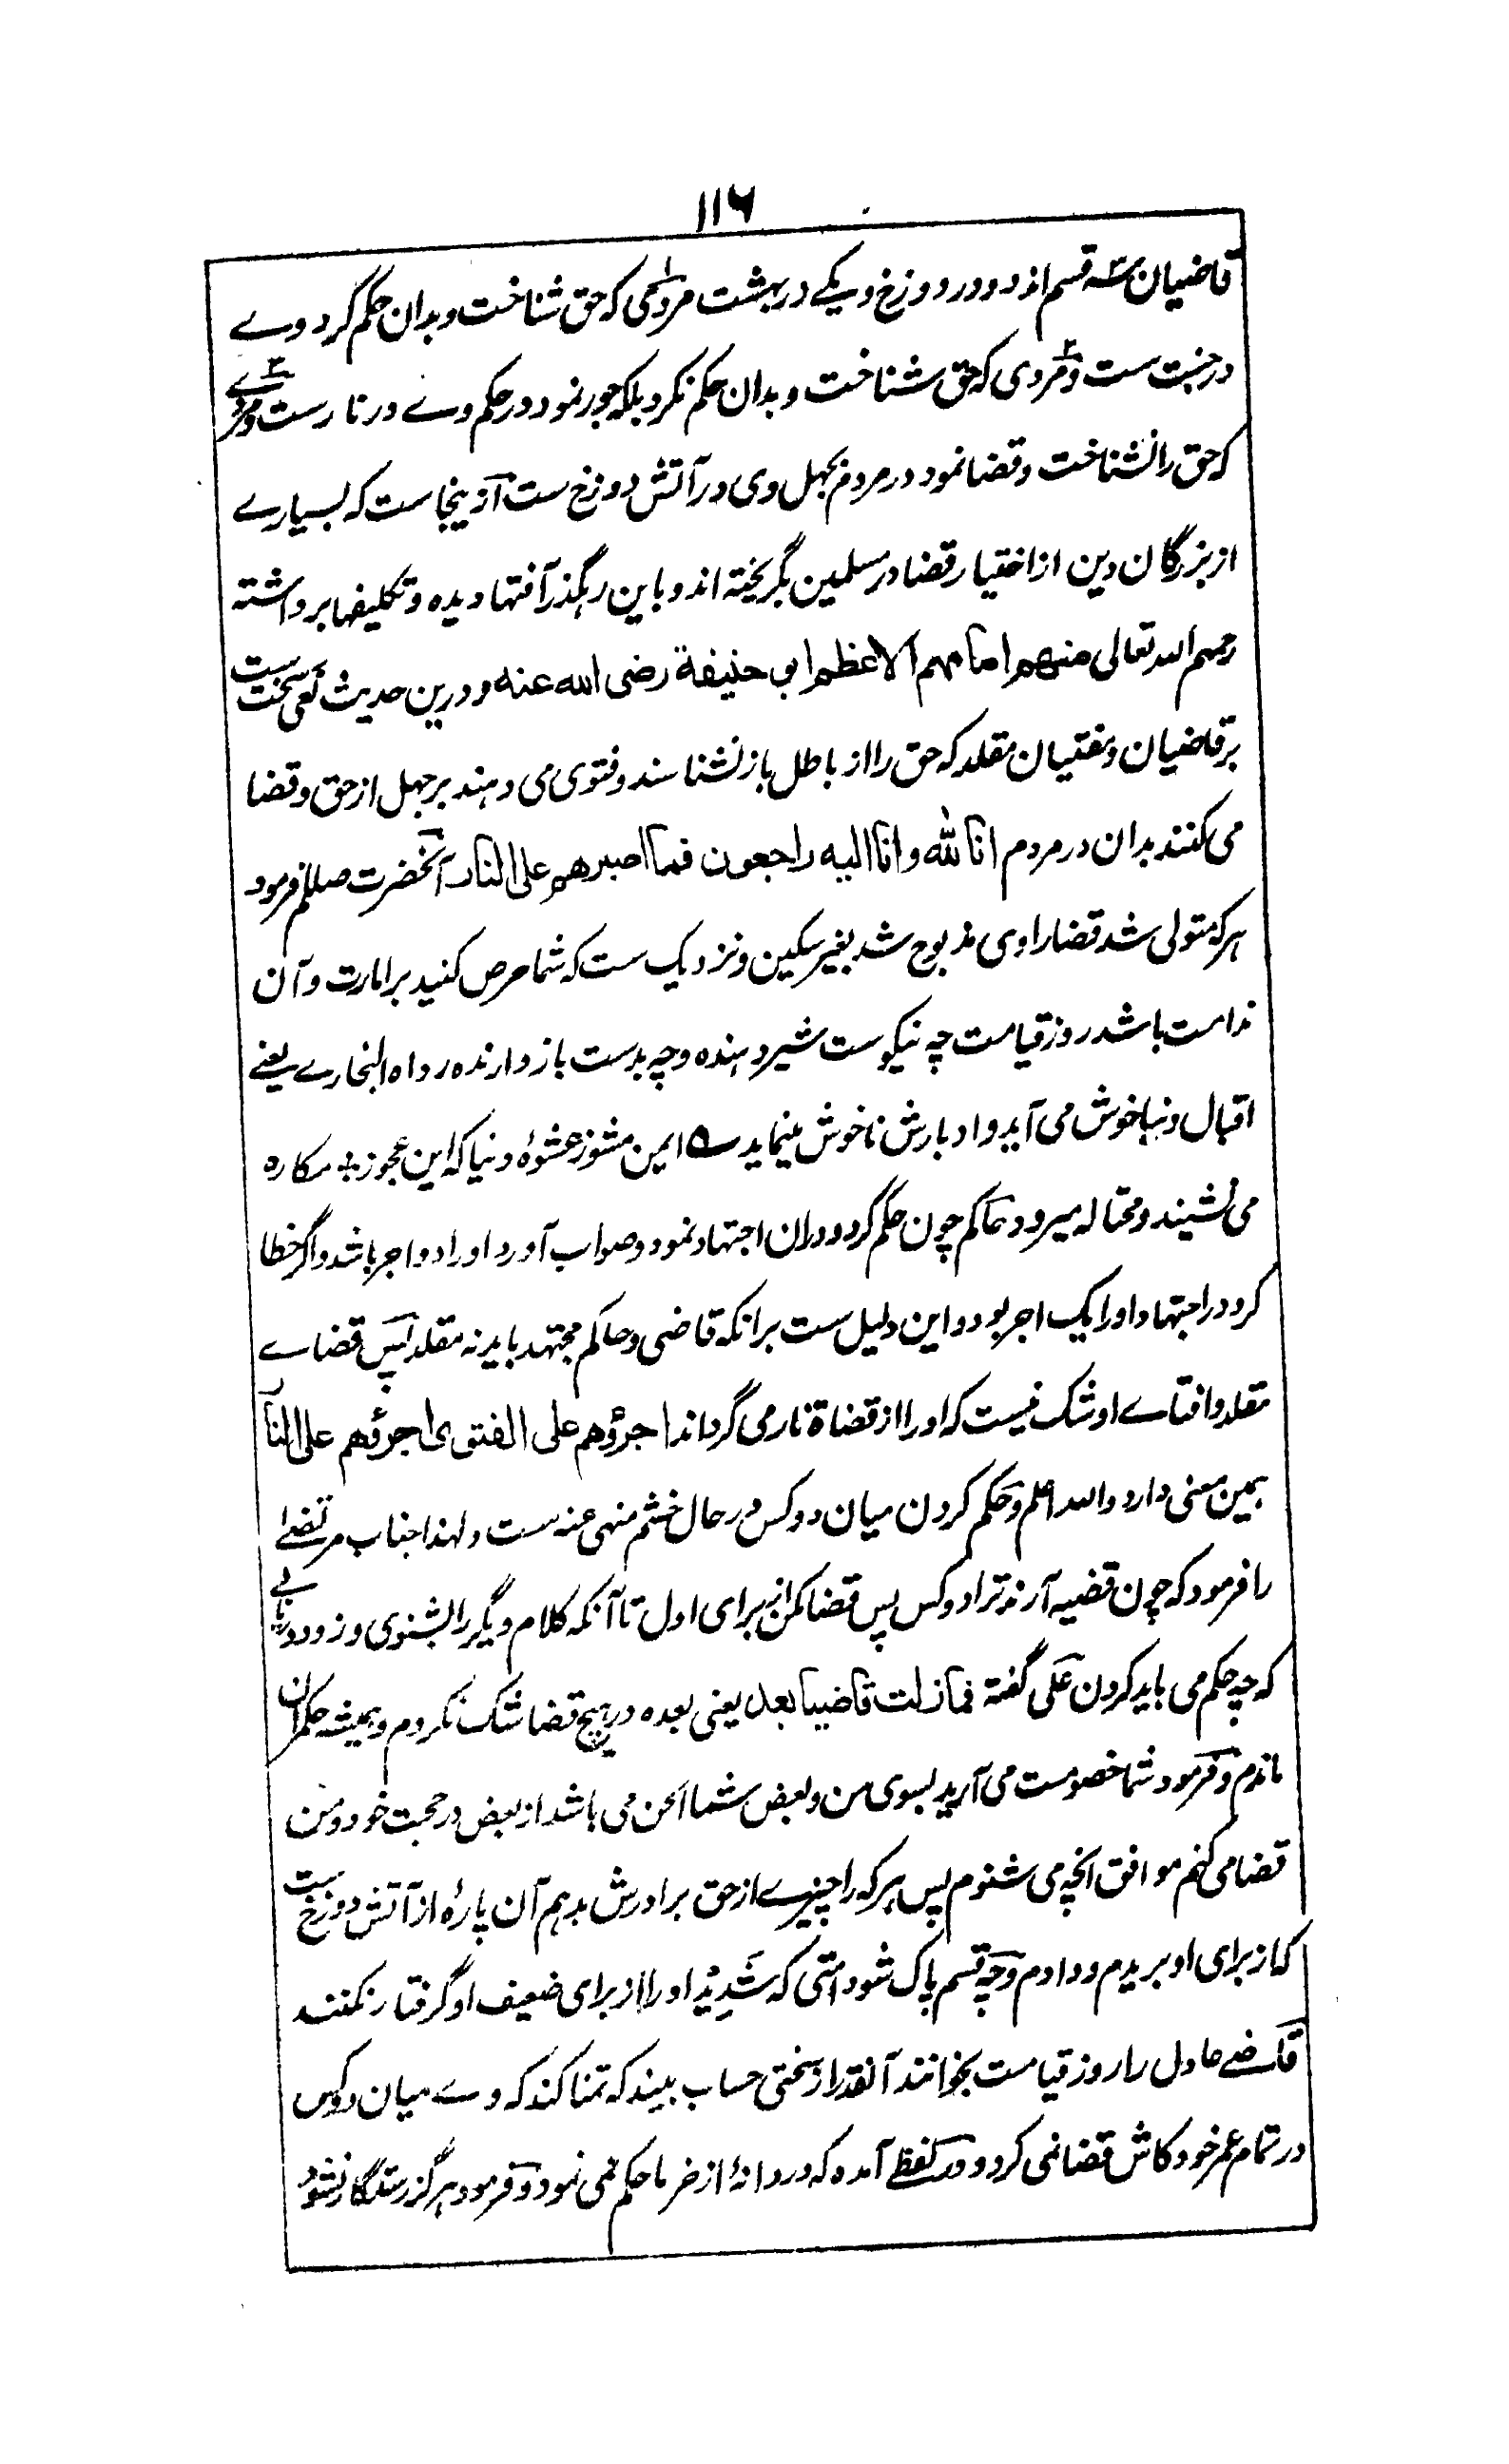 ۱۱۶
قاضیان سه قسم اند دو در دوزخ و یکے در بهشت مردی که حق شناخت و بدان حکم کرد وے
در جنت ست و مردی که حق شناخت و بدان حکم نکرد بلکه جور نمود در حکم وے در نار ست و مردے
که حق را نشناخت و قضا نمود در مردم بجهل وی در آتش دوزخ ست و ازینجاست که بسیارے
از بزرگان دین از اختیار قضا در مسلمین بگریخته اند و باین رهگذر آفتها دیده و تکلیفها برداشته
رحمهم الله تعالی منهم امامهم الاعظم ابو حنیفة رضی الله عنه و درین حدیث نعی سخت ست
بر قاضیان و مفتیان مقلد که حق را از باطل باز نشناسند و فتوی می دهند بر جهل از حق و قضا
می کنند بدان در مردم انا لله وانا الیه راجعون فما اصبرهم علی النار آنحضرت صللم فرمود
هر که متولی شد قضا را وی مذبوح شد بغیر سکین و نزدیک ست که شما حرص کنید بر امارت و آن
ندامت باشد روز قیامت چه نیکوست شیر دهنده و چه بدست باز دارنده رواه البخارے یعنے
اقبال دنیا خوش می آید و ادبارش ناخوش مینماید ے ایمن مشو ز عشوهٔ دنیا که این عجوز ٭ مکاره
می نشیند و محتاله میرود حاکم چون حکم کرد و دران اجتهاد نمود و صواب آورد او را دو اجر باشد و اگر خطا
کرد در اجتهاد او را یک اجر بود و این دلیل ست برانکه قاضی و حاکم مجتهد باید نه مقلد پس قضاے
مقلد و افتاے او شک نیست که او را از قضاة نار می گرداند اجرؤهم علی الفتوی اجرؤهم علی النار
همین معنی دارد والله اعلم و حکم کردن میان دو کس در حال خشم منهی عنه ست و لهذا جناب مرتضے
را فرمود که چون قضیه آرند ترا دو کس پس قضا مکن از برای اول تا آنکه کلام دیگر را بشنوی و زود دریابے
که چه حکم می باید کردن علی گفته فما زلت قاضیا بعد یعنی بعده در هیچ قضا شک نکردم و همیشه حکمران
ماندم و فرمود شما خصومت می آرید بسوی من و بعض شما الحن می باشد از بعض در حجت خود و من
قضا می کنم موافق انچه می شنوم پس هر که را چیزے از حق برادرش بدهم آن پارهٔ از آتش دوزخ ست
که از برای او بریدم و دادم و چه قسم پاک شود امتی که شدید او را از برای ضعیف او گرفتار نکنند
قاضے عادل را روز قیامت بخوانند آنقدر از سختی حساب بیند که تمنا کند که وے میان دو کس
در تمام عمر خود کاش قضا نمی کرد و در لفظے آمده که در دانهٔ از خرما حکم نمی نمود و فرمود هرگز رستگار نشود